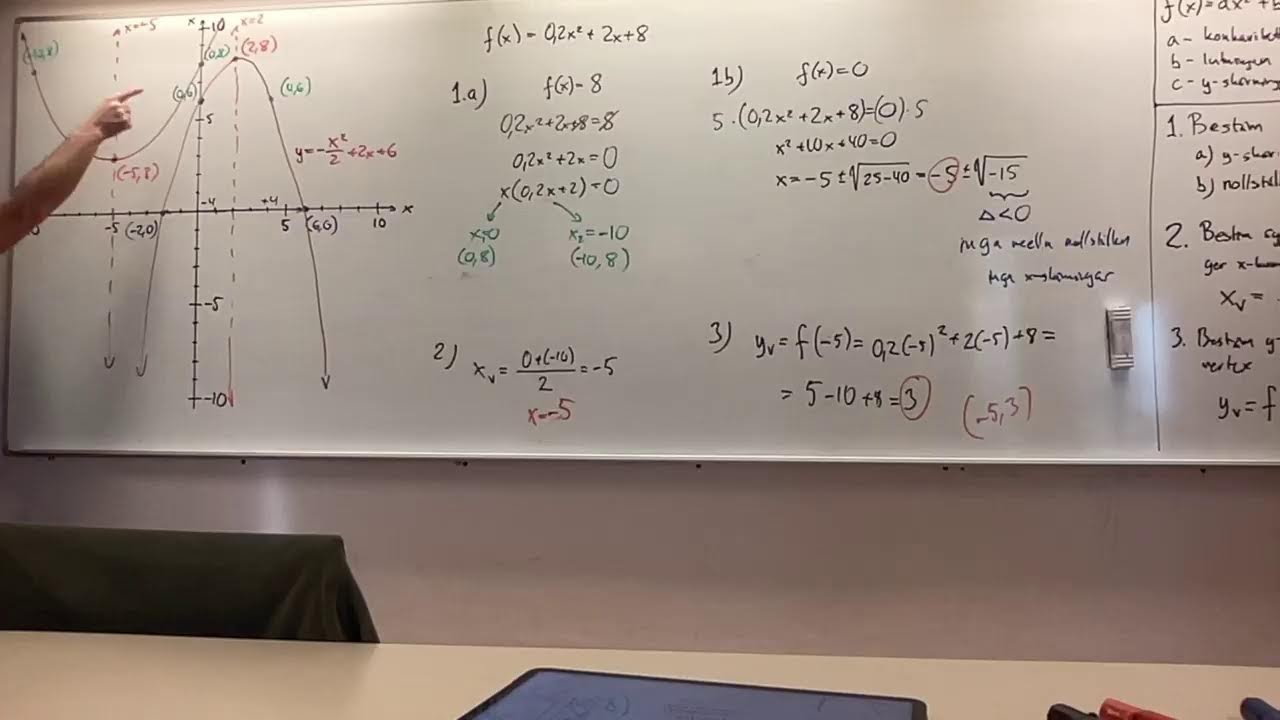 f(x) = 0,2x² + 2x + 8
1.a) f(x) = 8
0,2x² + 2x + 8 = 8
0,2x² + 2x = 0
x(0,2x + 2) = 0
x₁=0 x₂ = -10
(0,8) (-10, 8)
1b) f(x) = 0
5 · (0,2x² + 2x + 8) = (0) · 5
x² + 10x + 40 = 0
x = -5 ± √25-40 = -5 ± √-15
Δ < 0
inga reella nollställen
inga x-skärningar
2) xᵥ = 0+(-10) / 2 = -5
x=-5
3) yᵥ = f(-5) = 0,2(-5)² + 2(-5) + 8 =
= 5 - 10 + 8 = 3 (-5,3)
x=-5
x
10
x=2
(0,8)
(2,8)
(0,6)
5
y = -x²/2 + 2x + 6
(-5,8)
-4
+4
x
-5
(-2,0)
5
(6,0)
10
-5
-10
f(x) = ax² + b
a -
b -
c - y-skärning
1. Bestäm
a) y-skär
b) nollställ
2. Bestäm sy
ger x-
xᵥ =
3. Bestäm y-
vertex
yᵥ = f